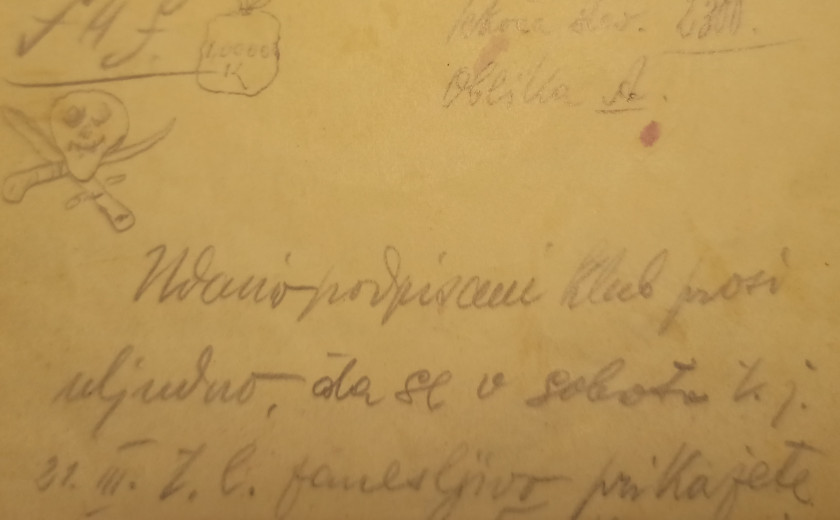 10000
K
štev. 2300.
Oblika A.
Udano podpisani klub prosi
uljudno, da se v soboto t. j.
21. III. t. l. zanesljivo prikažete